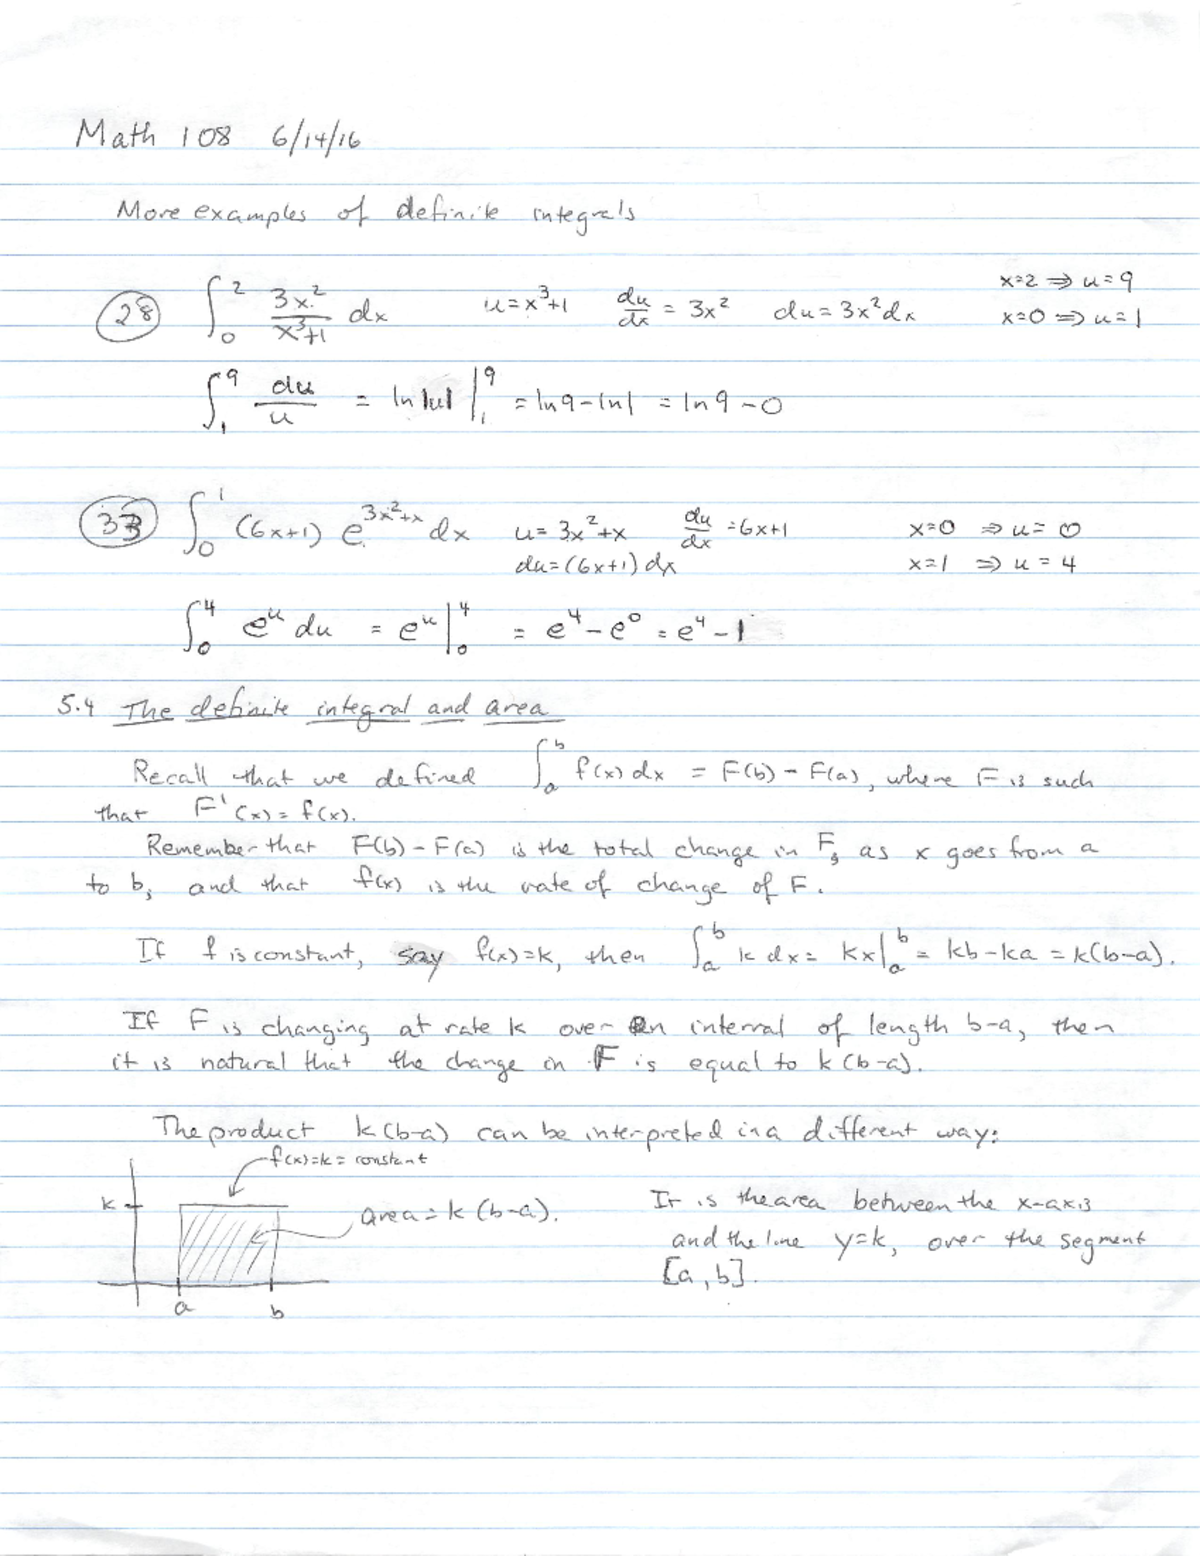 Math 108 6/14/16
More examples of definite integrals
(28) ∫₀² 3x²/(x³+1) dx u=x³+1 du/dx = 3x² du=3x²dx x=2 ⇒ u=9
x=0 ⇒ u=1
∫₁⁹ du/u = ln|u| |₁⁹ = ln9-ln1 = ln9-0
(33) ∫₀¹ (6x+1) e^(3x²+x) dx u= 3x²+x du/dx =6x+1 x=0 ⇒ u=0
du=(6x+1)dx x=1 ⇒ u=4
∫₀⁴ e^u du = e^u |₀⁴ = e⁴-e⁰ = e⁴-1
5.4 The definite integral and area
Recall that we defined ∫ₐᵇ f(x)dx = F(b)-F(a), where F is such
that F'(x)=f(x).
Remember that F(b)-F(a) is the total change in F, as x goes from a
to b, and that f(x) is the rate of change of F.
If f is constant, say f(x)=k, then ∫ₐᵇ k dx= kx|ₐᵇ = kb-ka = k(b-a).
If F is changing at rate k over an interval of length b-a, then
it is natural that the change in F is equal to k(b-a).
The product k(b-a) can be interpreted in a different way:
f(x)=k= constant
k
area=k(b-a).
a b
It is the area between the x-axis
and the line y=k, over the segment
[a,b].